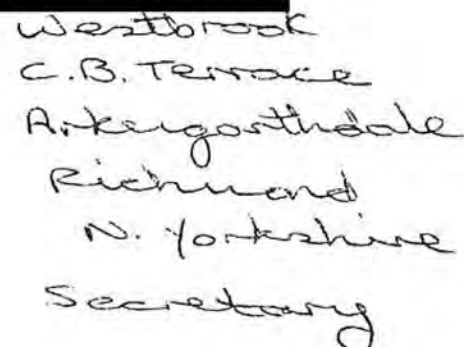 Westbrook
C.B. Terrace
Arkengarthdale
Richmond
N. Yorkshire
Secretary